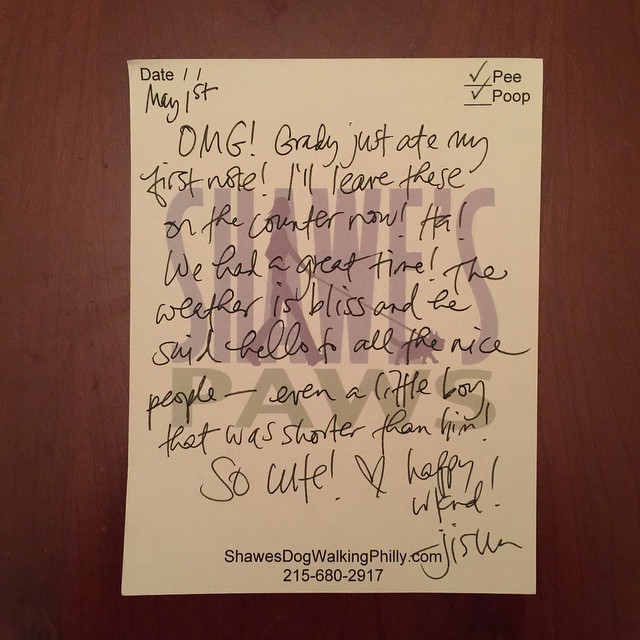 Date / /
May 1st
✓ Pee
✓ Poop
OMG! Grady just ate my
first note! I'll leave these
on the counter now! Ha!
We had a great time! The
weather is bliss and he
said hello to all the nice
people — even a little boy
that was shorter than him!
So cute! ♡ happy
wknd!
SHAWE'S
PAWS
ShawesDogWalkingPhilly.com
215-680-2917